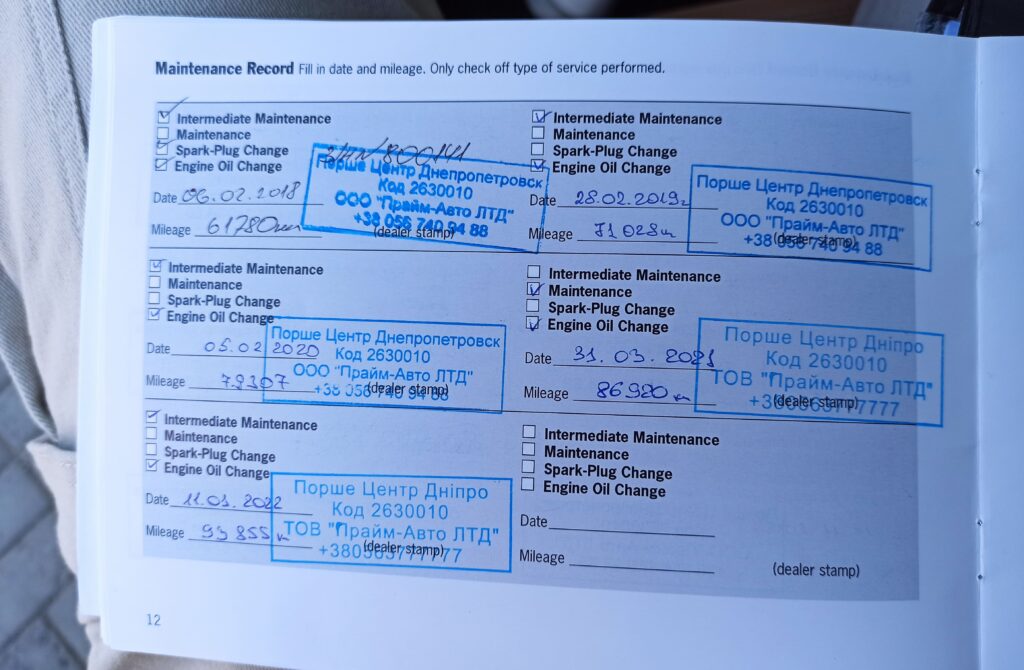 Maintenance Record Fill in date and mileage. Only check off type of service performed.
Intermediate Maintenance
Maintenance
Spark-Plug Change
Engine Oil Change
Date 06.02.2018
Mileage 61780км
(dealer stamp)
Порше Центр Днепропетровск
Код 2630010
ООО "Прайм-Авто ЛТД"
+38 056 740 94 88
Intermediate Maintenance
Maintenance
Spark-Plug Change
Engine Oil Change
Date 28.02.2019г
Mileage 71028км
(dealer stamp)
Порше Центр Днепропетровск
Код 2630010
ООО "Прайм-Авто ЛТД"
+38 056 740 94 88
Intermediate Maintenance
Maintenance
Spark-Plug Change
Engine Oil Change
Date 05.02 2020
Mileage 79307
(dealer stamp)
Порше Центр Днепропетровск
Код 2630010
ООО "Прайм-Авто ЛТД"
+38 056 740 94 88
Intermediate Maintenance
Maintenance
Spark-Plug Change
Engine Oil Change
Date 31.03.2021
Mileage 86920 км
(dealer stamp)
Порше Центр Дніпро
Код 2630010
ТОВ "Прайм-Авто ЛТД"
Intermediate Maintenance
Maintenance
Spark-Plug Change
Engine Oil Change
Date 11.01.2022
Mileage 93855 км
(dealer stamp)
Порше Центр Дніпро
Код 2630010
ТОВ "Прайм-Авто ЛТД"
Intermediate Maintenance
Maintenance
Spark-Plug Change
Engine Oil Change
Date
Mileage
(dealer stamp)
12